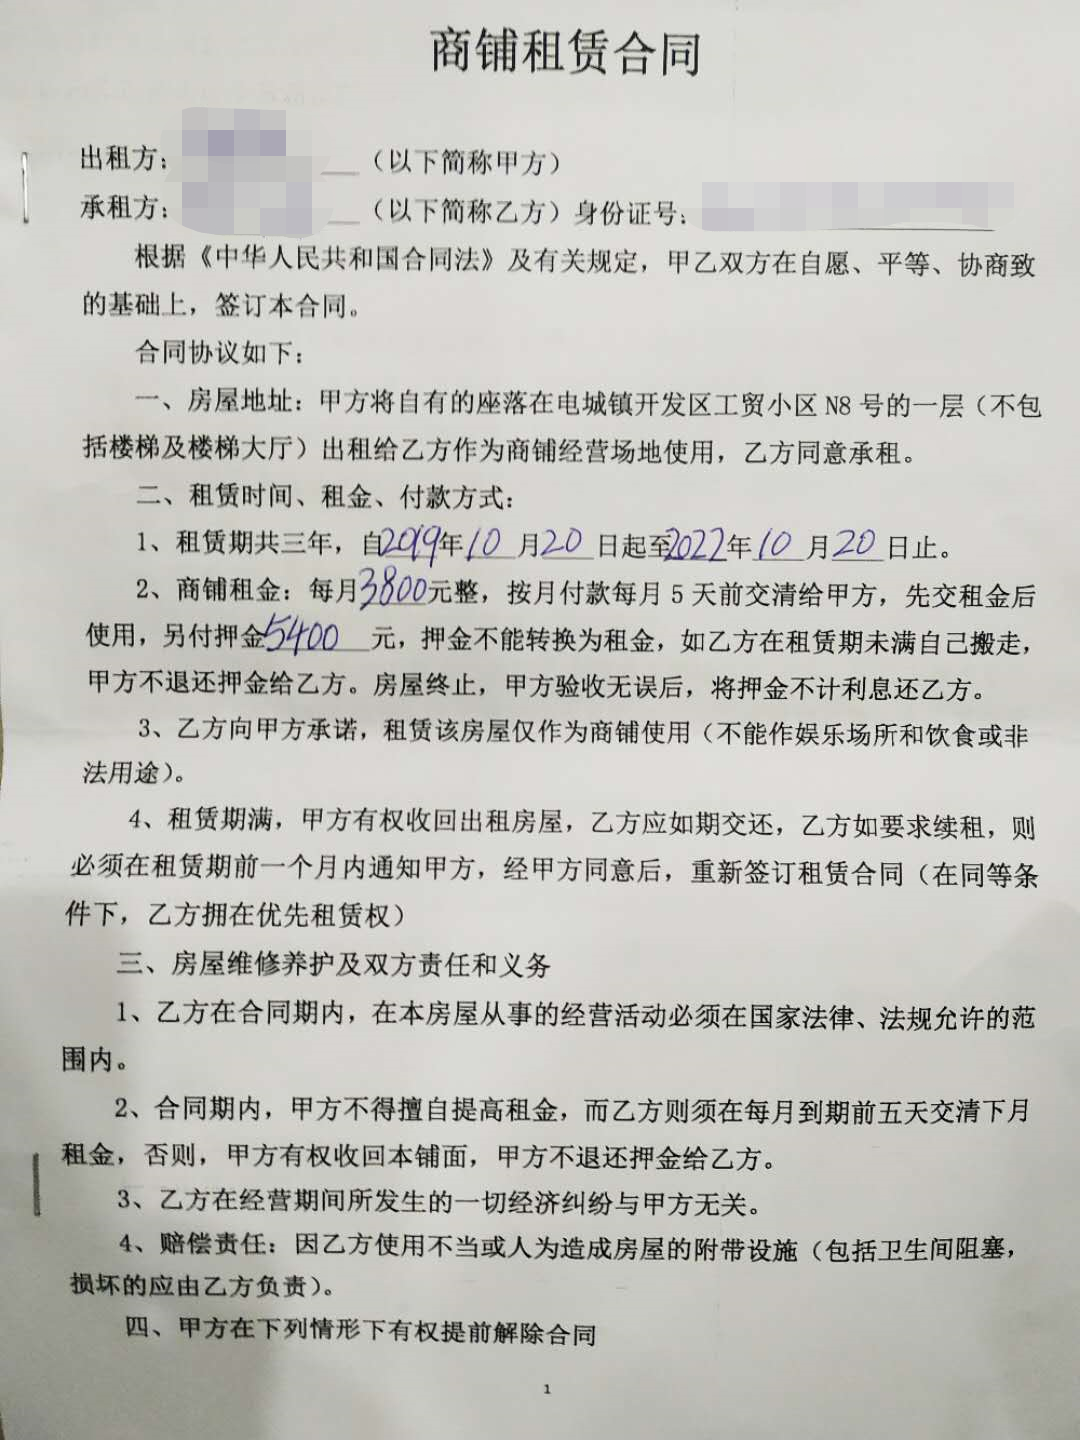 商铺租赁合同
出租方：（以下简称甲方）
承租方：（以下简称乙方）身份证号：
根据《中华人民共和国合同法》及有关规定，甲乙双方在自愿、平等、协商致
的基础上，签订本合同。
合同协议如下：
一、房屋地址：甲方将自有的座落在电城镇开发区工贸小区 N8 号的一层（不包
括楼梯及楼梯大厅）出租给乙方作为商铺经营场地使用，乙方同意承租。
二、租赁时间、租金、付款方式：
1、租赁期共三年，自2019年10月20日起至2022年10月20日止。
2、商铺租金：每月3800元整，按月付款每月 5 天前交清给甲方，先交租金后
使用，另付押金5400元，押金不能转换为租金，如乙方在租赁期未满自己搬走，
甲方不退还押金给乙方。房屋终止，甲方验收无误后，将押金不计利息还乙方。
3、乙方向甲方承诺，租赁该房屋仅作为商铺使用（不能作娱乐场所和饮食或非
法用途）。
4、租赁期满，甲方有权收回出租房屋，乙方应如期交还，乙方如要求续租，则
必须在租赁期前一个月内通知甲方，经甲方同意后，重新签订租赁合同（在同等条
件下，乙方拥在优先租赁权）
三、房屋维修养护及双方责任和义务
1、乙方在合同期内，在本房屋从事的经营活动必须在国家法律、法规允许的范
围内。
2、合同期内，甲方不得擅自提高租金，而乙方则须在每月到期前五天交清下月
租金，否则，甲方有权收回本铺面，甲方不退还押金给乙方。
3、乙方在经营期间所发生的一切经济纠纷与甲方无关。
4、赔偿责任：因乙方使用不当或人为造成房屋的附带设施（包括卫生间阻塞，
损坏的应由乙方负责）。
四、甲方在下列情形下有权提前解除合同
1